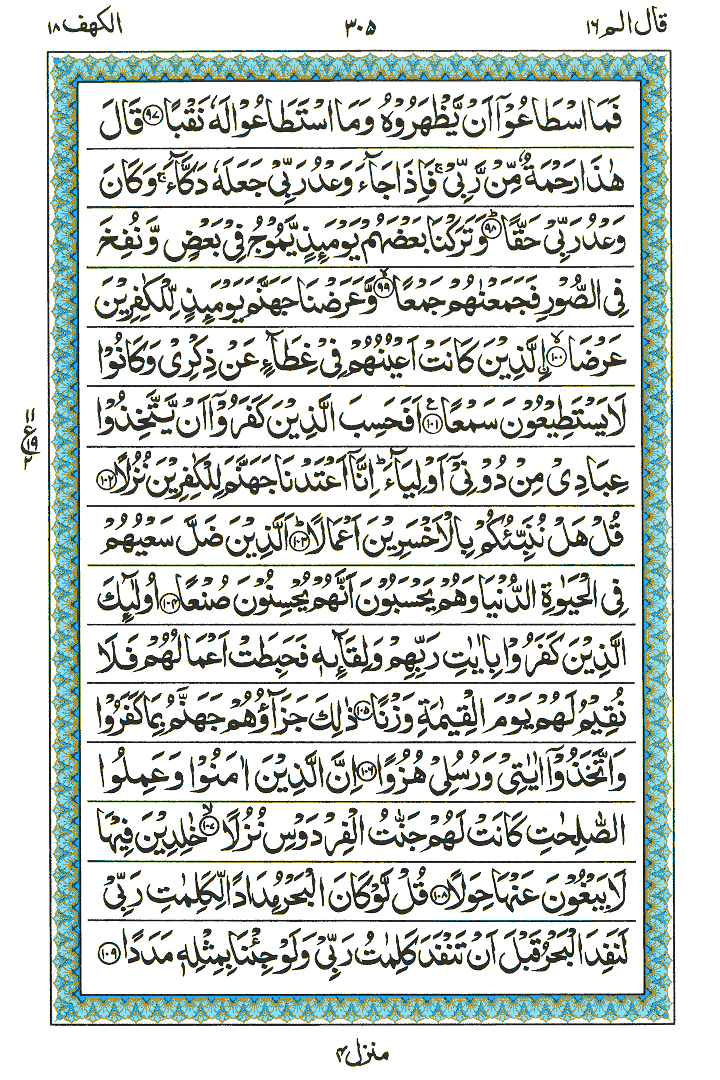 قال الم ١٦
٣٠٥
الكهف ١٨
فَمَا اسْطَاعُوْۤا اَنْ يَّظْهَرُوْهُ وَمَا اسْتَطَاعُوْا لَهٗ نَقْبًا ﴿٩٧﴾ قَالَ
هٰذَا رَحْمَةٌ مِّنْ رَّبِّيْ ۚ فَاِذَا جَآءَ وَعْدُ رَبِّيْ جَعَلَهٗ دَكَّآءَ ۚ وَكَانَ
وَعْدُ رَبِّيْ حَقًّا ﴿٩٨﴾ؕ وَتَرَكْنَا بَعْضَهُمْ يَوْمَىِٕذٍ يَّمُوْجُ فِيْ بَعْضٍ وَّنُفِخَ
فِي الصُّوْرِ فَجَمَعْنٰهُمْ جَمْعًا ﴿٩٩﴾ۙ وَّعَرَضْنَا جَهَنَّمَ يَوْمَىِٕذٍ لِّلْكٰفِرِيْنَ
عَرْضَا ﴿١٠٠﴾ۙ ۨالَّذِيْنَ كَانَتْ اَعْيُنُهُمْ فِيْ غِطَآءٍ عَنْ ذِكْرِيْ وَكَانُوْا
لَا يَسْتَطِيْعُوْنَ سَمْعًا ﴿١٠١﴾ع اَفَحَسِبَ الَّذِيْنَ كَفَرُوْۤا اَنْ يَّتَّخِذُوْا
عِبَادِيْ مِنْ دُوْنِيْۤ اَوْلِيَآءَ ؕ اِنَّاۤ اَعْتَدْنَا جَهَنَّمَ لِلْكٰفِرِيْنَ نُزُلًا ﴿١٠٢﴾
قُلْ هَلْ نُنَبِّئُكُمْ بِالْاَخْسَرِيْنَ اَعْمَالًا ﴿١٠٣﴾ؕ اَلَّذِيْنَ ضَلَّ سَعْيُهُمْ
فِي الْحَيٰوةِ الدُّنْيَا وَهُمْ يَحْسَبُوْنَ اَنَّهُمْ يُحْسِنُوْنَ صُنْعًا ﴿١٠٤﴾ اُولٰٓىِٕكَ
الَّذِيْنَ كَفَرُوْا بِاٰيٰتِ رَبِّهِمْ وَلِقَآىِٕهٖ فَحَبِطَتْ اَعْمَالُهُمْ فَلَا
نُقِيْمُ لَهُمْ يَوْمَ الْقِيٰمَةِ وَزْنًا ﴿١٠٥﴾ ذٰلِكَ جَزَآؤُهُمْ جَهَنَّمُ بِمَا كَفَرُوْا
وَاتَّخَذُوْۤا اٰيٰتِيْ وَرُسُلِيْ هُزُوًا ﴿١٠٦﴾ اِنَّ الَّذِيْنَ اٰمَنُوْا وَعَمِلُوا
الصّٰلِحٰتِ كَانَتْ لَهُمْ جَنّٰتُ الْفِرْدَوْسِ نُزُلًا ﴿١٠٧﴾ۙ خٰلِدِيْنَ فِيْهَا
لَا يَبْغُوْنَ عَنْهَا حِوَلًا ﴿١٠٨﴾ قُلْ لَّوْ كَانَ الْبَحْرُ مِدَادًا لِّكَلِمٰتِ رَبِّيْ
لَنَفِدَ الْبَحْرُ قَبْلَ اَنْ تَنْفَدَ كَلِمٰتُ رَبِّيْ وَلَوْ جِئْنَا بِمِثْلِهٖ مَدَدًا ﴿١٠٩﴾
١١
ع ١٩
٢
منزل ٤